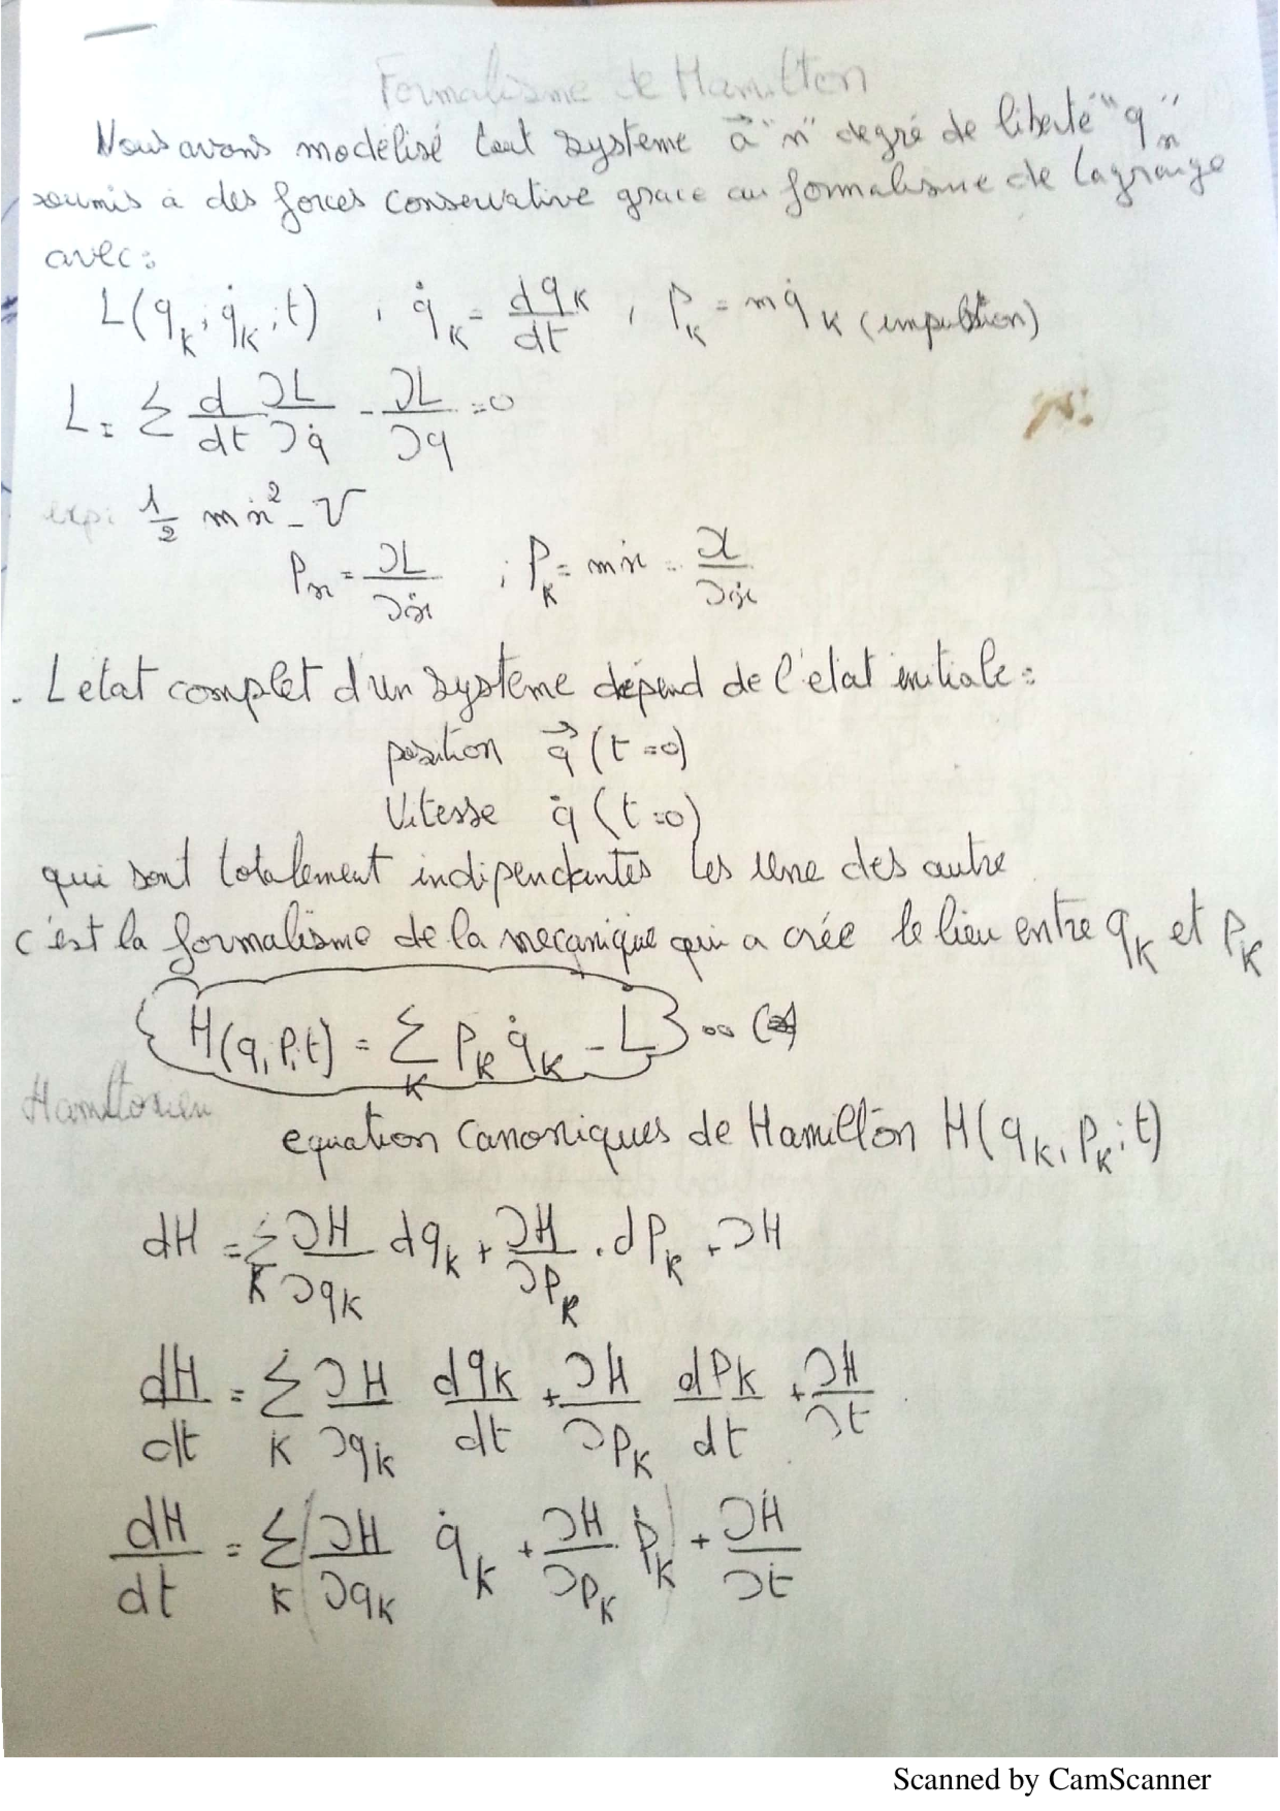 Formalisme de Hamilton
Nous avons modélisé tout système à "n" degré de liberté "qn"
soumis à des forces conservative grace au formalisme de Lagrange
avec:
L(qk, q̇k, t) , q̇k = dqk/dt , Pk = mq̇k (impulsion)
L = Σ d/dt ∂L/∂q̇ - ∂L/∂q = 0
exp: 1/2 mẋ² - V
Px = ∂L/∂ẋ ; Pk = mẋ = ∂L/∂ẋ
. L'etat complet d'un système dépend de l'état initiale:
position q⃗ (t=0)
Vitesse q̇ (t=0)
qui sont totalement indipendantes les une des autre
c'est la formalisme de la mecanique qui a crée le lien entre qk et Pk
H(q,P,t) = Σk Pk q̇k - L
Hamiltonien
equation canoniques de Hamilton H(qk, Pk; t)
dH = Σk ∂H/∂qk dqk + ∂H/∂Pk . dPk + ∂H
dH/dt = Σk ∂H/∂qk dqk/dt + ∂H/∂Pk dPk/dt + ∂H/∂t
dH/dt = Σk (∂H/∂qk q̇k + ∂H/∂Pk Ṗk) + ∂H/∂t
Scanned by CamScanner